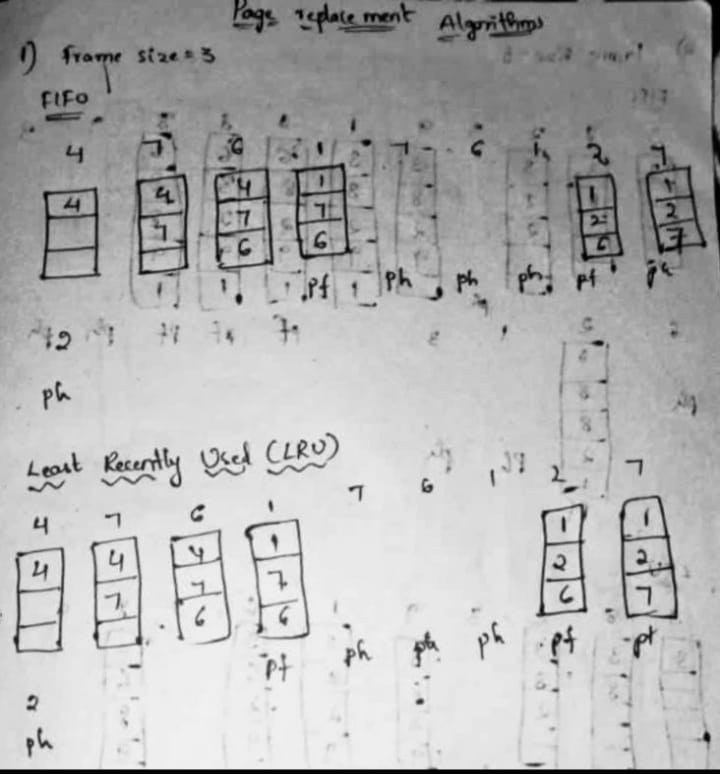 Page replacement Algorithms
1) frame size = 3
FIFO
4 7 6 1 7 6 1 2 7
4 4 4 1 1 1
7 7 7 2 2
6 6 6 7
pf ph ph ph pf
2
ph
Least Recently Used (LRU)
4 7 6 1 7 6 1 2 7
4 4 4 1 1 1
7 7 7 2 2
6 6 6 7
pf ph ph ph pf pf
2
ph